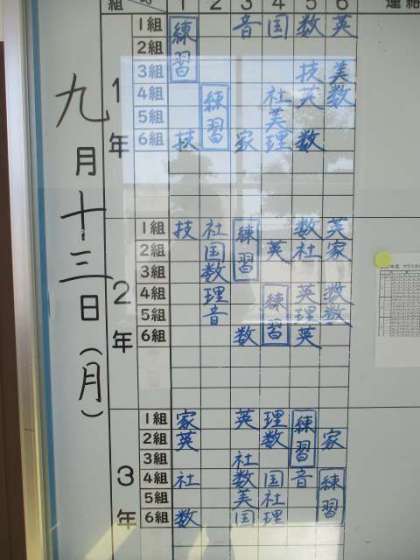 組 1 2 3 4 5 6 連絡
九月十三日(月)
1年
1組 練習 音 国 数 英
2組
3組 技 美
4組 練習 社 英 数
5組 美
6組 技 家 理 数
2年
1組 技 社 練習 数 英
2組 国 英 社 家
3組 数
4組 理 練習 英 数
5組 音 理 数
6組 数 英
3年
1組 家 英 理 練習
2組 英 数 家
3組 社
4組 社 数 国 音 練習
5組 美 社
6組 数 国 理